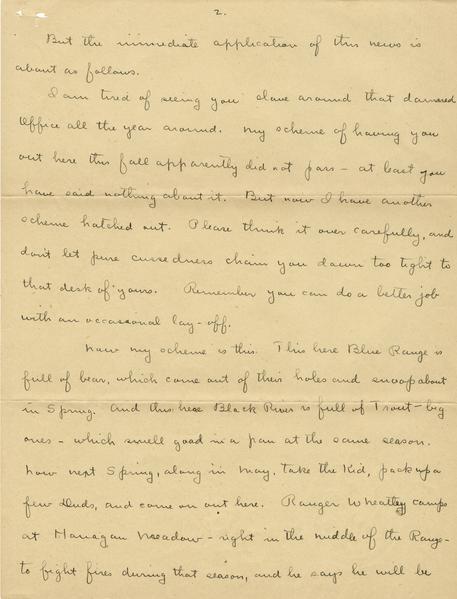 2.
But the immediate application of this news is
about as follows.
I am tired of seeing you slave around that damned
Office all the year around. My scheme of having you
out here this fall apparently did not pass - at least you
have said nothing about it. But now I have another
scheme hatched out. Please think it over carefully, and
don't let pure cussedness chain you down too tight to
that desk of yours. Remember you can do a better job
with an occasional lay-off.
Now my scheme is this. This here Blue Range is
full of bear, which come out of their holes and snoop about
in Spring. And this here Black River is full of Trout - big
ones - which smell good in a pan at the same season.
Now next Spring, along in May, take the Kid, pack up a
few Duds, and come on out here. Ranger Wheatley camps
at Hanagan Meadow - right in the middle of the Range -
to fight fires during that season, and he says he will be